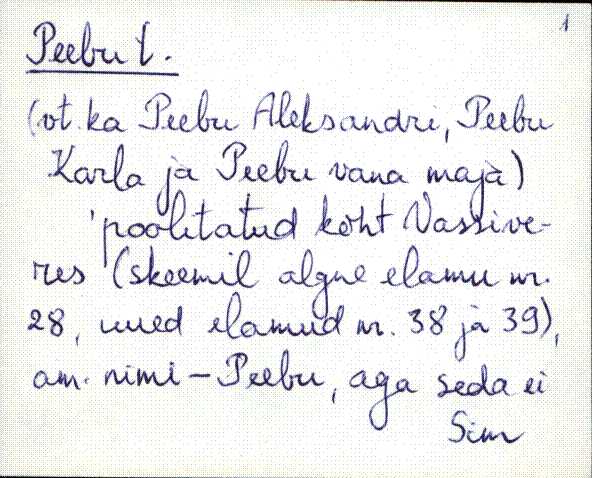 1
Peebu t.
(vt. ka Peebu Aleksandri, Peebu
Karla ja Peebu vana maja)
'poolitatud koht Vassive-
res (skeemil algne elamu nr.
28, uued elamud nr. 38 ja 39),
am. nimi – Peebu, aga seda ei
Sim